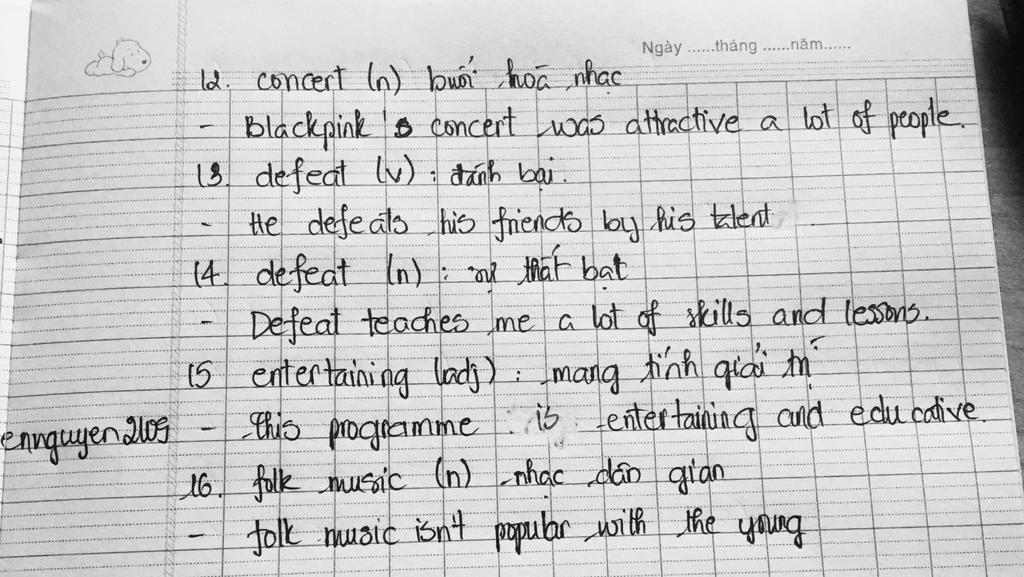 Ngày ......tháng ......năm......
12. concert (n) buổi hoà nhạc
- Blackpink's concert was attractive a lot of people.
13. defeat (v) : đánh bại.
- He defeats his friends by his talent
14. defeat (n) : sự thất bại
- Defeat teaches me a lot of skills and lessons.
15 entertaining (adj) : mang tính giải trí
ennguyen2109 - this programme is entertaining and educative.
16. folk music (n) nhạc dân gian
- folk music isn't popular with the young